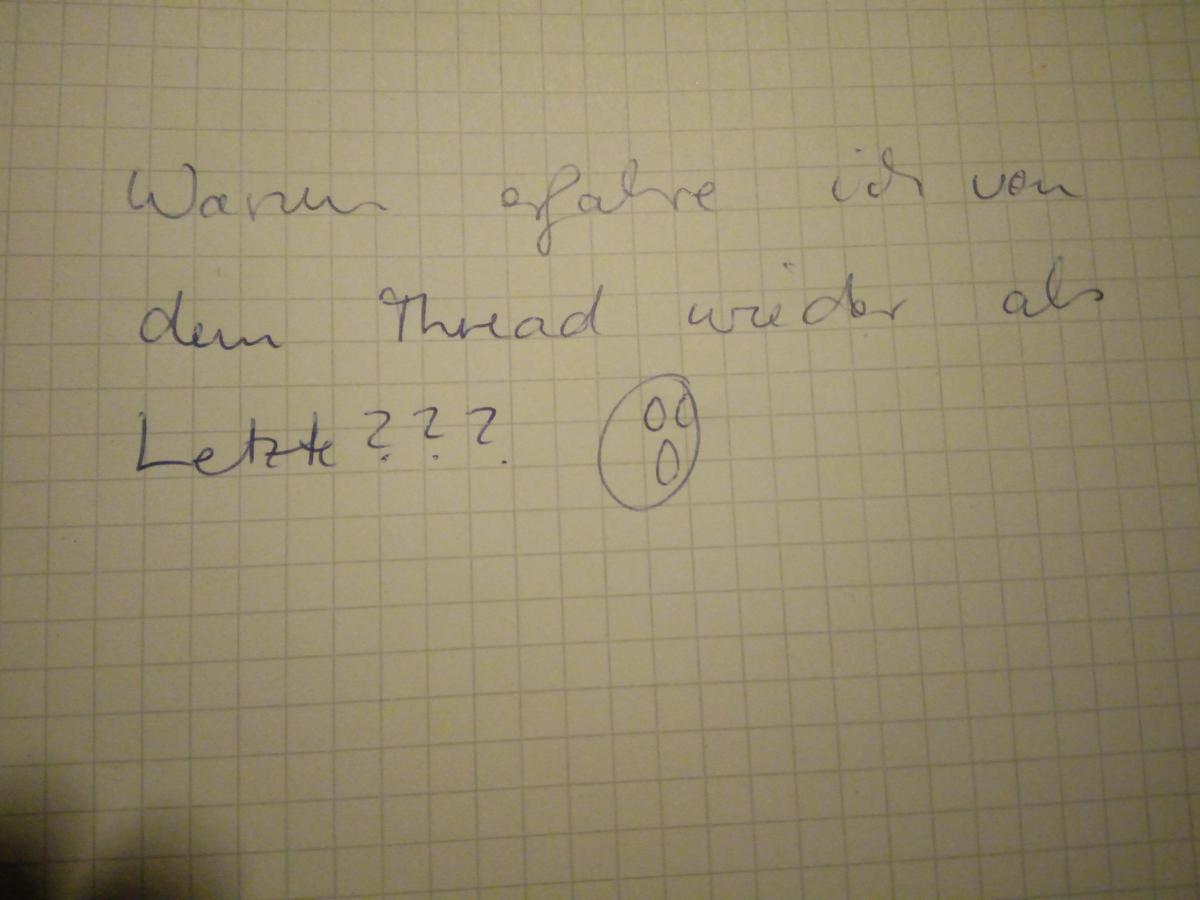 Warum erfahre ich von
dem Thread wieder als
Letzte???